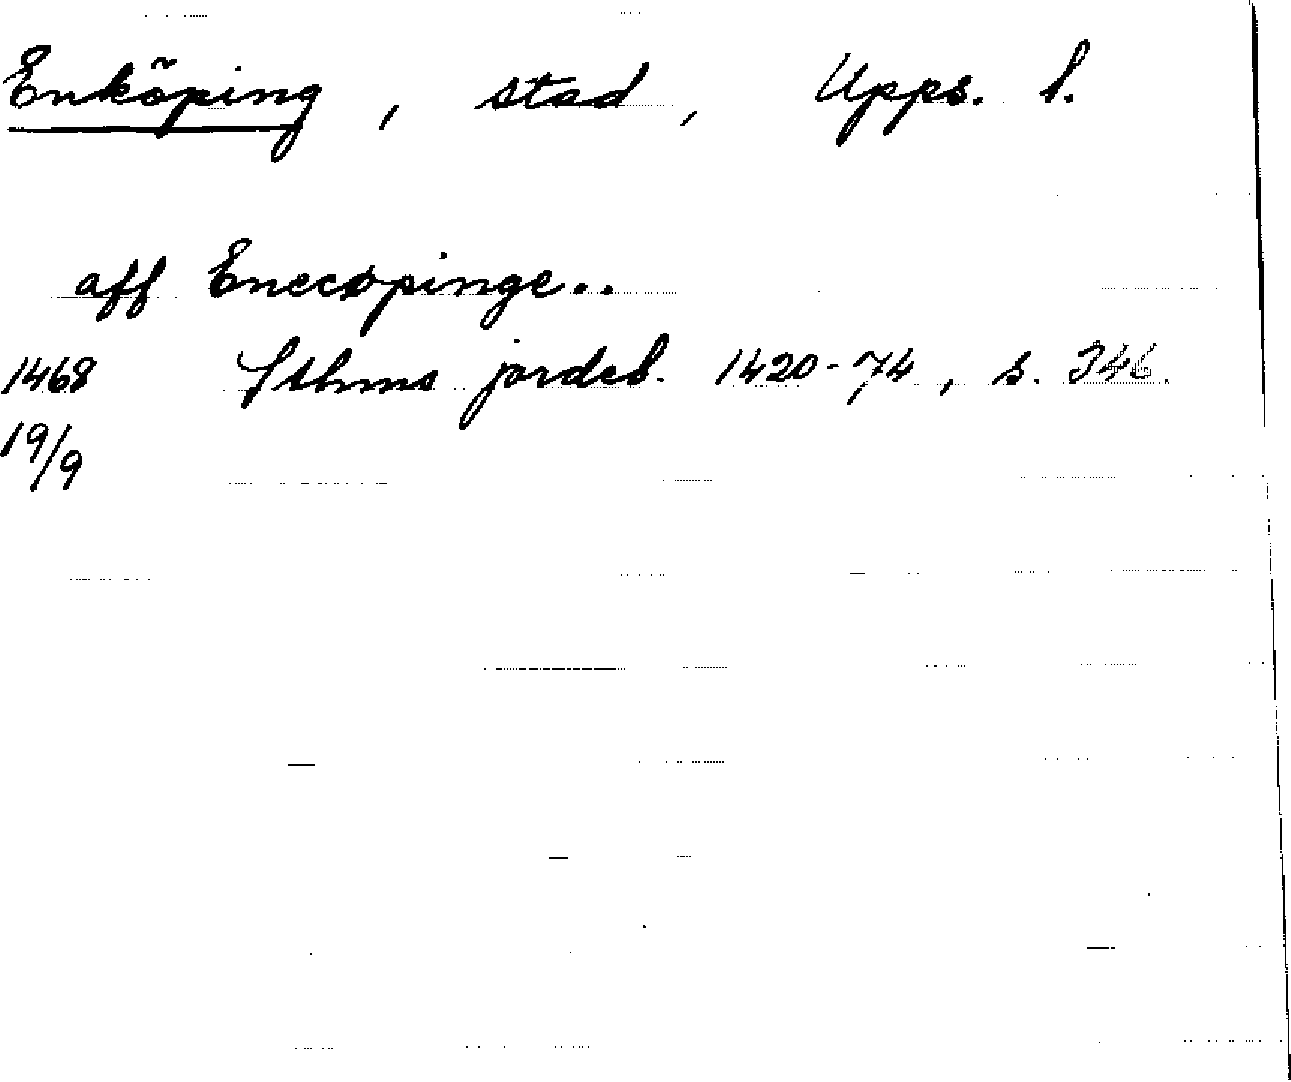 Enköping, stad, Upps. l.
aff Enecøpinge..
1468 Sthms jordeb. 1420-74, s. 346.
19/9